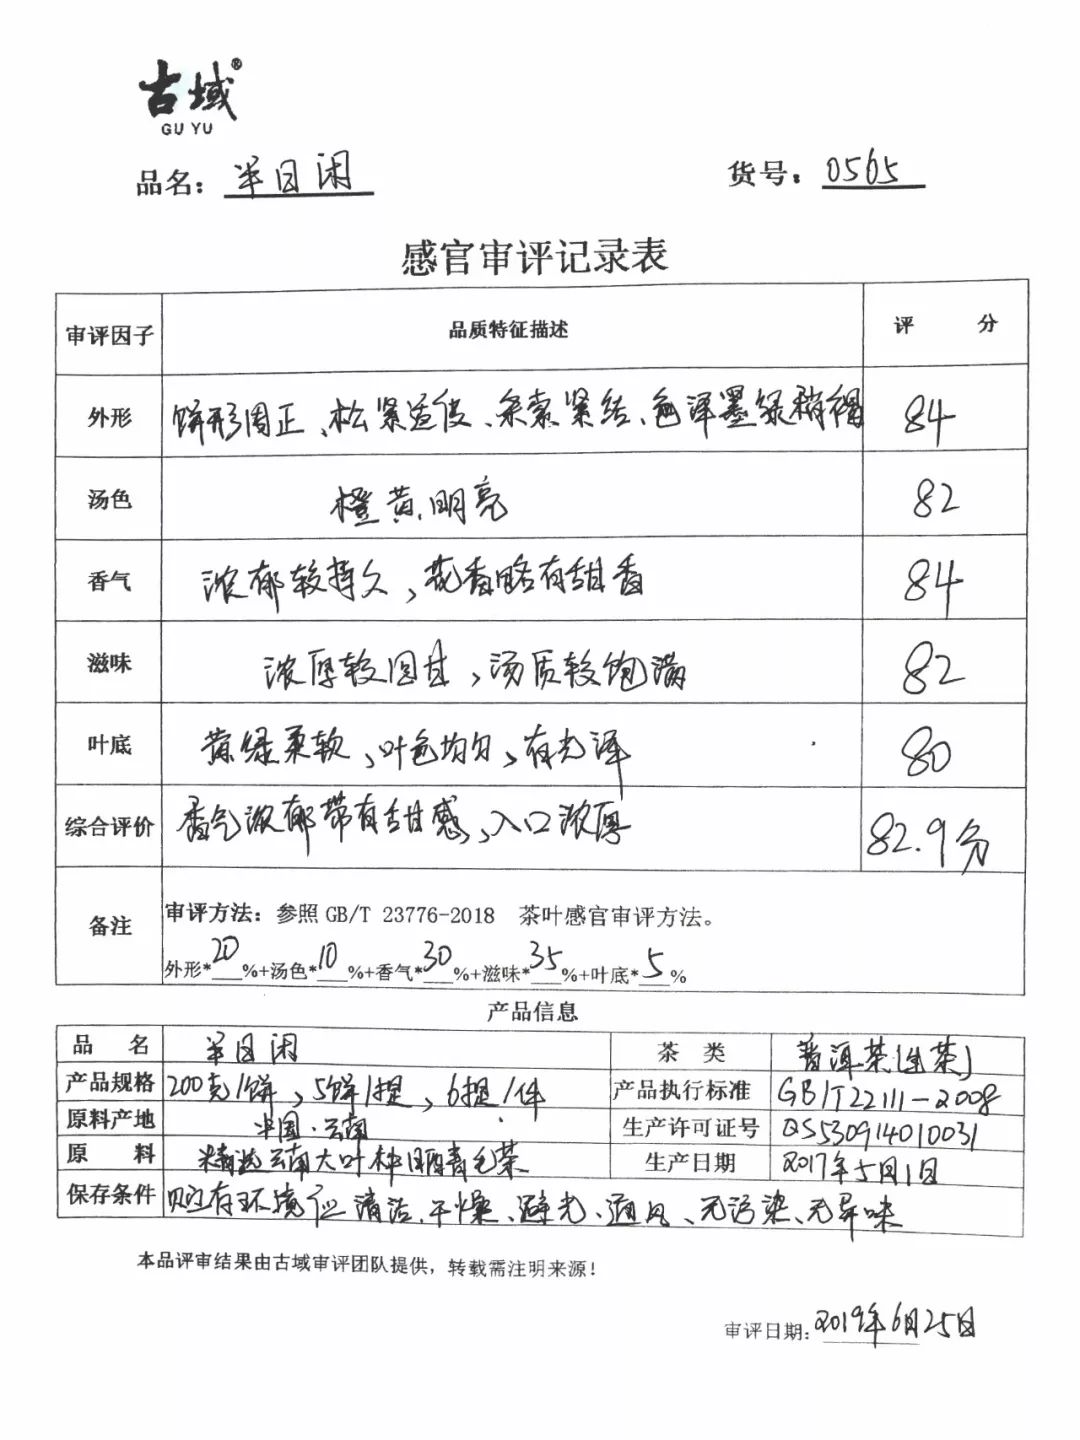 古域®
GU YU
品名: 半日闲 货号: 0565
感官审评记录表
审评因子 品质特征描述 评 分
外形 饼形周正、松紧适度、条索紧结、色泽墨绿稍褐 84
汤色 橙黄明亮 82
香气 浓郁较持久，花香略有甜香 84
滋味 浓厚较回甘，汤质较饱满 82
叶底 黄绿柔软，叶色均匀，有光泽 80
综合评价 香气浓郁带有甜感，入口浓厚 82.9分
备注 审评方法：参照GB/T 23776-2018 茶叶感官审评方法。
外形*20%+汤色*10%+香气*30%+滋味*35%+叶底*5%
产品信息
品 名 半日闲 茶 类 普洱茶(生茶)
产品规格 200克/饼，5饼/提，6提/件 产品执行标准 GB/T22111-2008
原料产地 中国·云南 生产许可证号 QS530914010031
原 料 精选云南大叶种晒青毛茶 生产日期 2017年5月1日
保存条件 贮存环境应清洁、干燥、避光、通风、无污染、无异味
本品评审结果由古域审评团队提供，转载需注明来源！
审评日期: 2019年6月25日